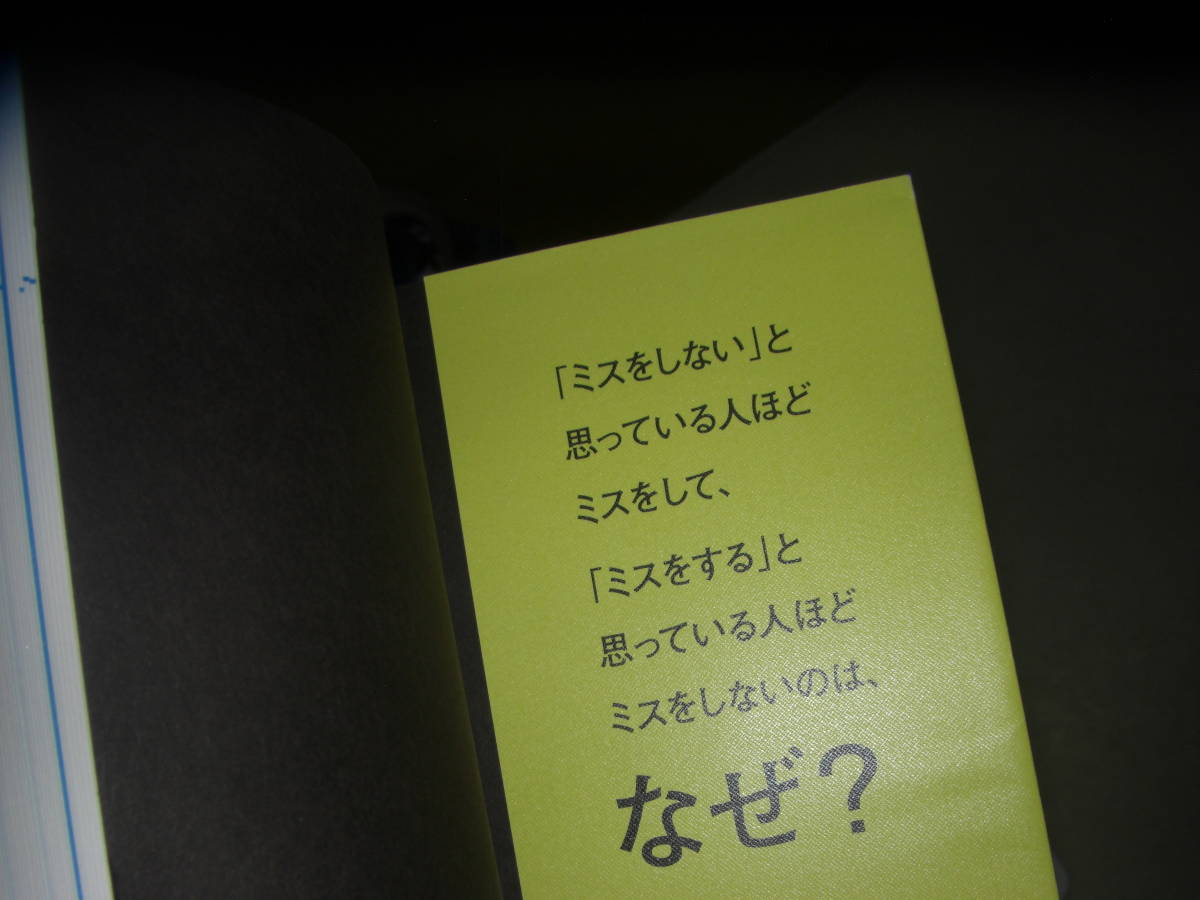 「ミスをしない」と
思っている人ほど
ミスをして、
「ミスをする」と
思っている人ほど
ミスをしないのは、
なぜ？